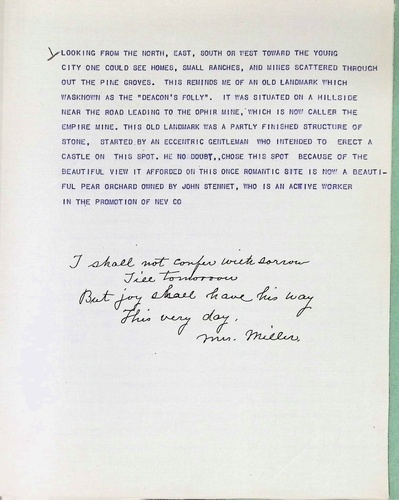 LOOKING FROM THE NORTH, EAST, SOUTH OR WEST TOWARD THE YOUNG
CITY ONE COULD SEE HOMES, SMALL RANCHES, AND MINES SCATTERED THROUGH
OUT THE PINE GROVES. THIS REMINDS ME OF AN OLD LANDMARK WHICH
WASKNOWN AS THE "DEACON'S FOLLY". IT WAS SITUATED ON A HILLSIDE
NEAR THE ROAD LEADING TO THE OPHIR MINE, WHICH IS NOW CALLER THE
EMPIRE MINE. THIS OLD LANDMARK WAS A PARTLY FINISHED STRUCTURE OF
STONE, STARTED BY AN ECCENTRIC GENTLEMAN WHO INTENDED TO ERECT A
CASTLE ON THIS SPOT. HE NO DOUBT,,CHOSE THIS SPOT BECAUSE OF THE
BEAUTIFUL VIEW IT AFFORDED ON THIS ONCE ROMANTIC SITE IS NOW A BEAUTI-
FUL PEAR ORCHARD OWNED BY JOHN STENNET, WHO IS AN ACTIVE WORKER
IN THE PROMOTION OF NEV CO
I shall not confer with sorrow
Till tomorrow
But joy shall have his way
This very day.
Mrs. Miller.